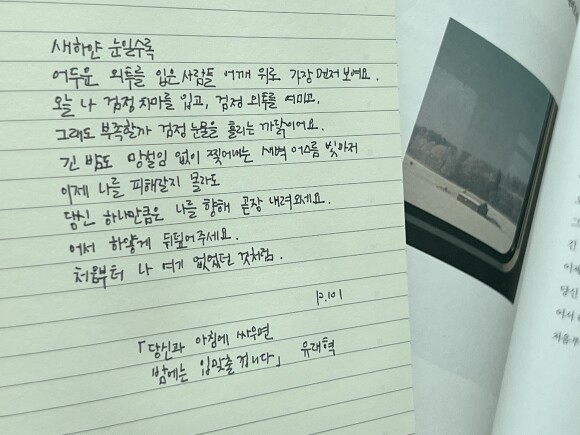 새하얀 눈일수록
어두운 외투를 입은 사람들 어깨 위로 가장 먼저 보여요.
오늘 나 검정 치마를 입고, 검정 외투를 여미고.
그래도 부족할까 검정 눈물을 흘리는 까닭이어요.
긴 밤도 망설임 없이 찢어내는 새벽 어스름 빗아저
이제 나를 피해갈지 몰라도
당신 하나만큼은 나를 향해 곧장 내려와세요.
어서 하얗게 뒤덮어주세요.
처음부터 나 여기 없었던 것처럼.
p.101
「당신과 아침에 싸우면
밤에는 입맞출 겁니다」 유래혁
그
긴
이제
당신
어서
처음부